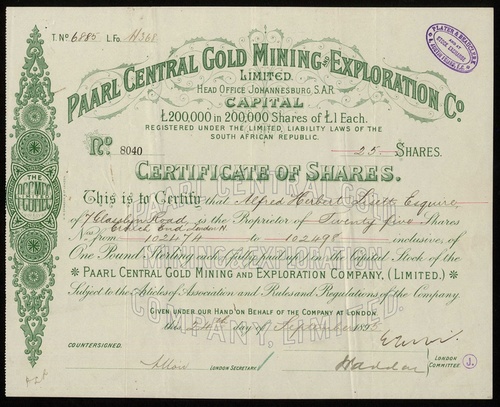 T. No 6885 L. Fo. H368
PAARL CENTRAL GOLD MINING AND EXPLORATION Co
LIMITED.
HEAD OFFICE JOHANNESBURG, S.A.R.
CAPITAL
£200,000 IN 200,000 SHARES OF £1 EACH.
REGISTERED UNDER THE LIMITED LIABILITY LAWS OF THE
SOUTH AFRICAN REPUBLIC.
No. 8040 25 SHARES.
CERTIFICATE OF SHARES.
This is to Certify that Alfred Herbert Esquire
of 7 Road, is the Proprietor of Twenty five Shares
Crouch End London N.
Nos. from 102474 to 102498 inclusive, of
One Pound Sterling each fully paid up in the Capital Stock of the
PAARL CENTRAL GOLD MINING AND EXPLORATION COMPANY, (LIMITED.)
Subject to the Articles of Association and Rules and Regulations of the Company.
GIVEN UNDER OUR HAND ON BEHALF OF THE COMPANY AT LONDON.
this 24th day of September 1895
COUNTERSIGNED.
LONDON SECRETARY
LONDON
COMMITTEE.
J.